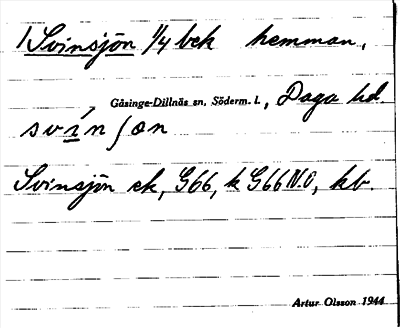 1 Svinsjön 1/4 bek hemman,
Gåsinge-Dillnäs sn, Söderm. l., Daga hd.
svínʃön
Svinsjön ek, G66, k G66 N.O, kb
Artur Olsson 1944